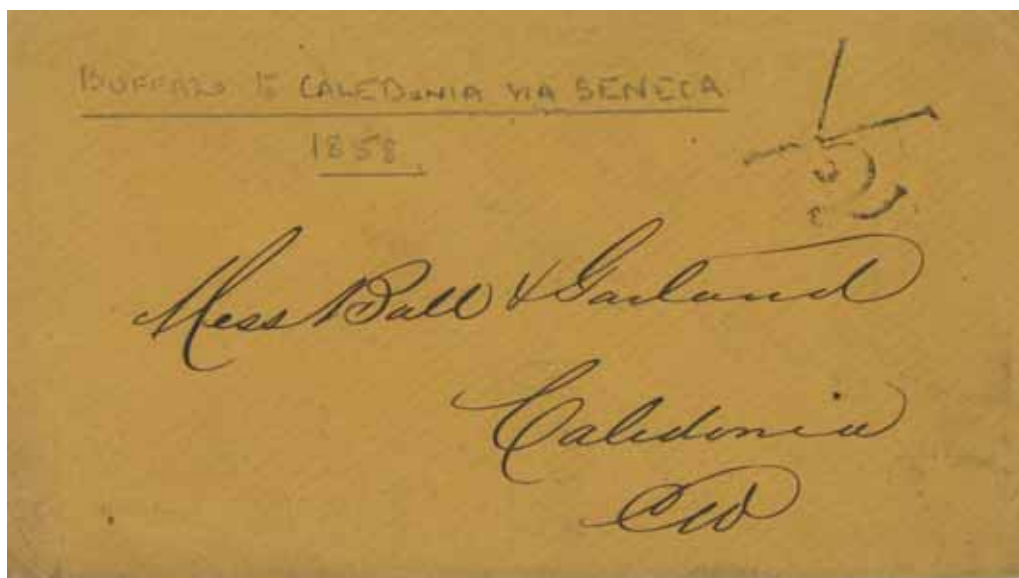 BUFFALO TO CALEDONIA VIA SENECA
1858.
Mess Ball & Garland
Caledonia
CW